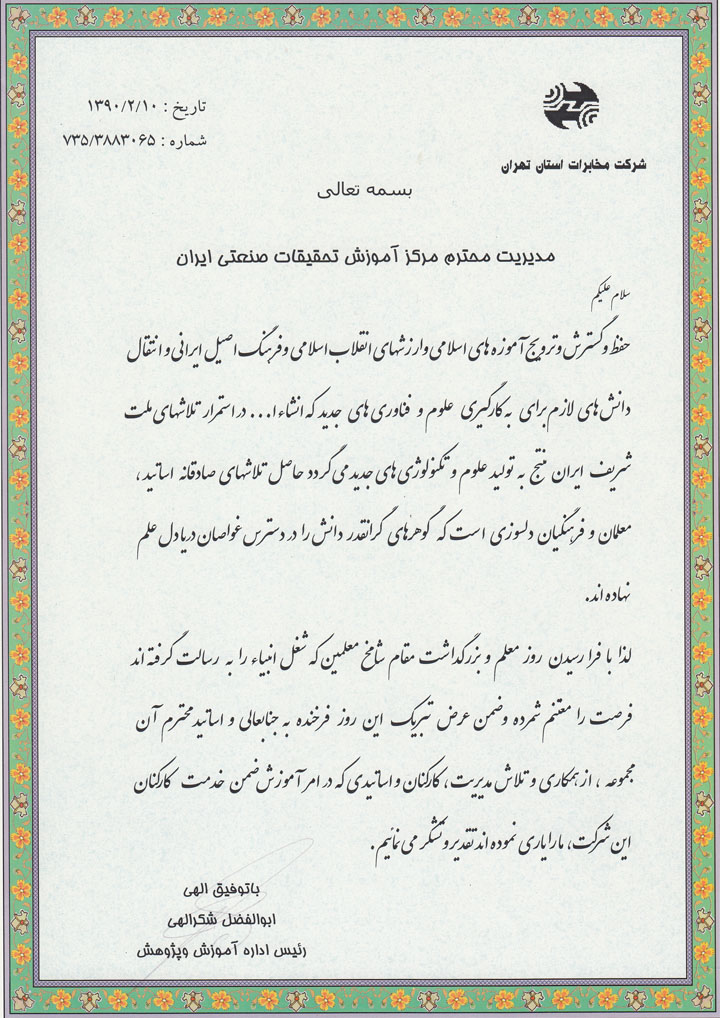 تاریخ : ۱۳۹۰/۲/۱۰
شماره : ۷۳۵/۳۸۸۳۰۶۵
شرکت مخابرات استان تهران
بسمه تعالی
مدیریت محترم مرکز آموزش تحقیقات صنعتی ایران
سلام علیکم
حفظ و گسترش و ترویج آموزه های اسلامی و ارزشهای انقلاب اسلامی و فرهنگ اصیل ایرانی و انتقال
دانش های لازم برای به کارگیری علوم و فناوری های جدید که انشاء ا... در استمرار تلاشهای ملت
شریف ایران منتج به تولید علوم و تکنولوژی های جدید می گردد حاصل تلاشهای صادقانه اساتید ،
معلمان و فرهنگیان دلسوزی است که گوهرهای گرانقدر دانش را در دسترس غواصان دریادل علم
نهاده اند.
لذا با فرا رسیدن روز معلم و بزرگداشت مقام شامخ معلمین که شغل انبیاء را به رسالت گرفته اند
فرصت را مغتنم شمرده وضمن عرض تبریک این روز فرخنده به جنابعالی و اساتید محترم آن
مجموعه ، از همکاری و تلاش مدیریت، کارکنان و اساتیدی که در امر آموزش ضمن خدمت کارکنان
این شرکت، ما را یاری نموده اند تقدیر و تشکر می نمائیم.
باتوفیق الهی
ابوالفضل شکرالهی
رئیس اداره آموزش وپژوهش